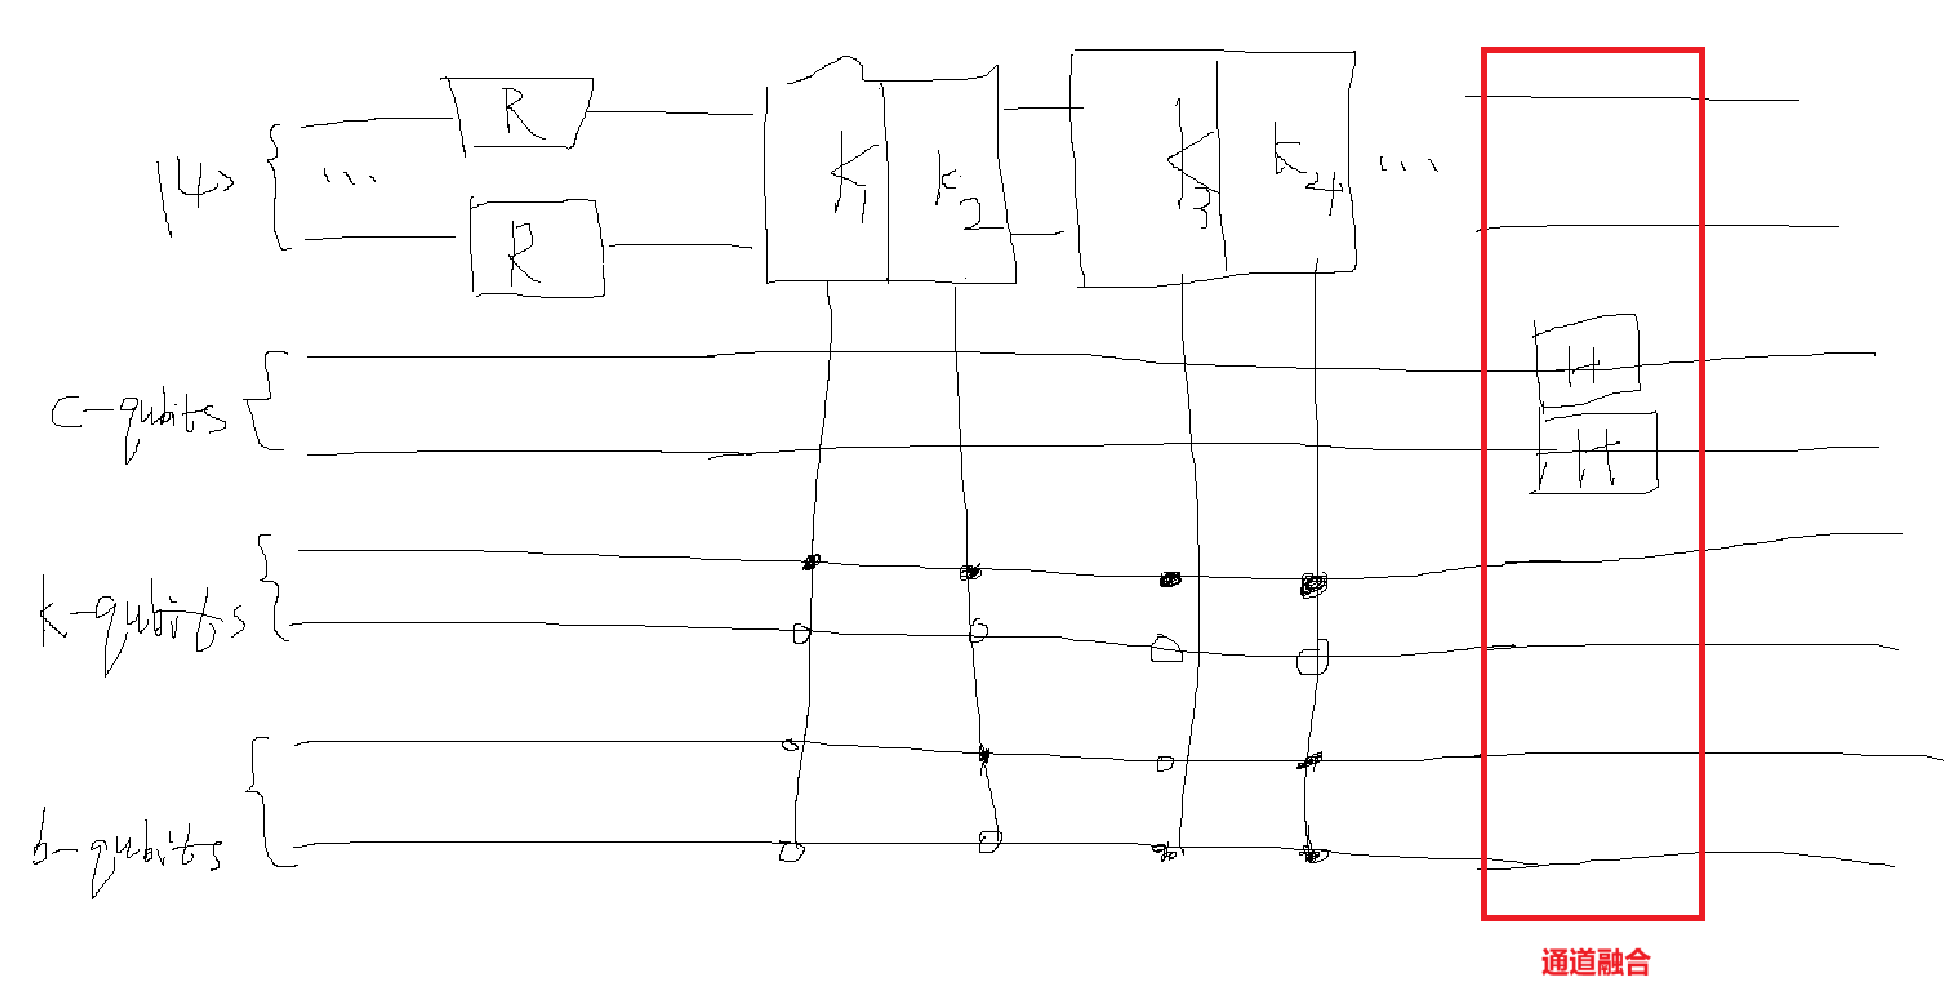 R
K1 k2 K3 k24 ...
|4> { ...
R
H
c-qubits {
H
k-qubits {
b-qubits {
通道融合